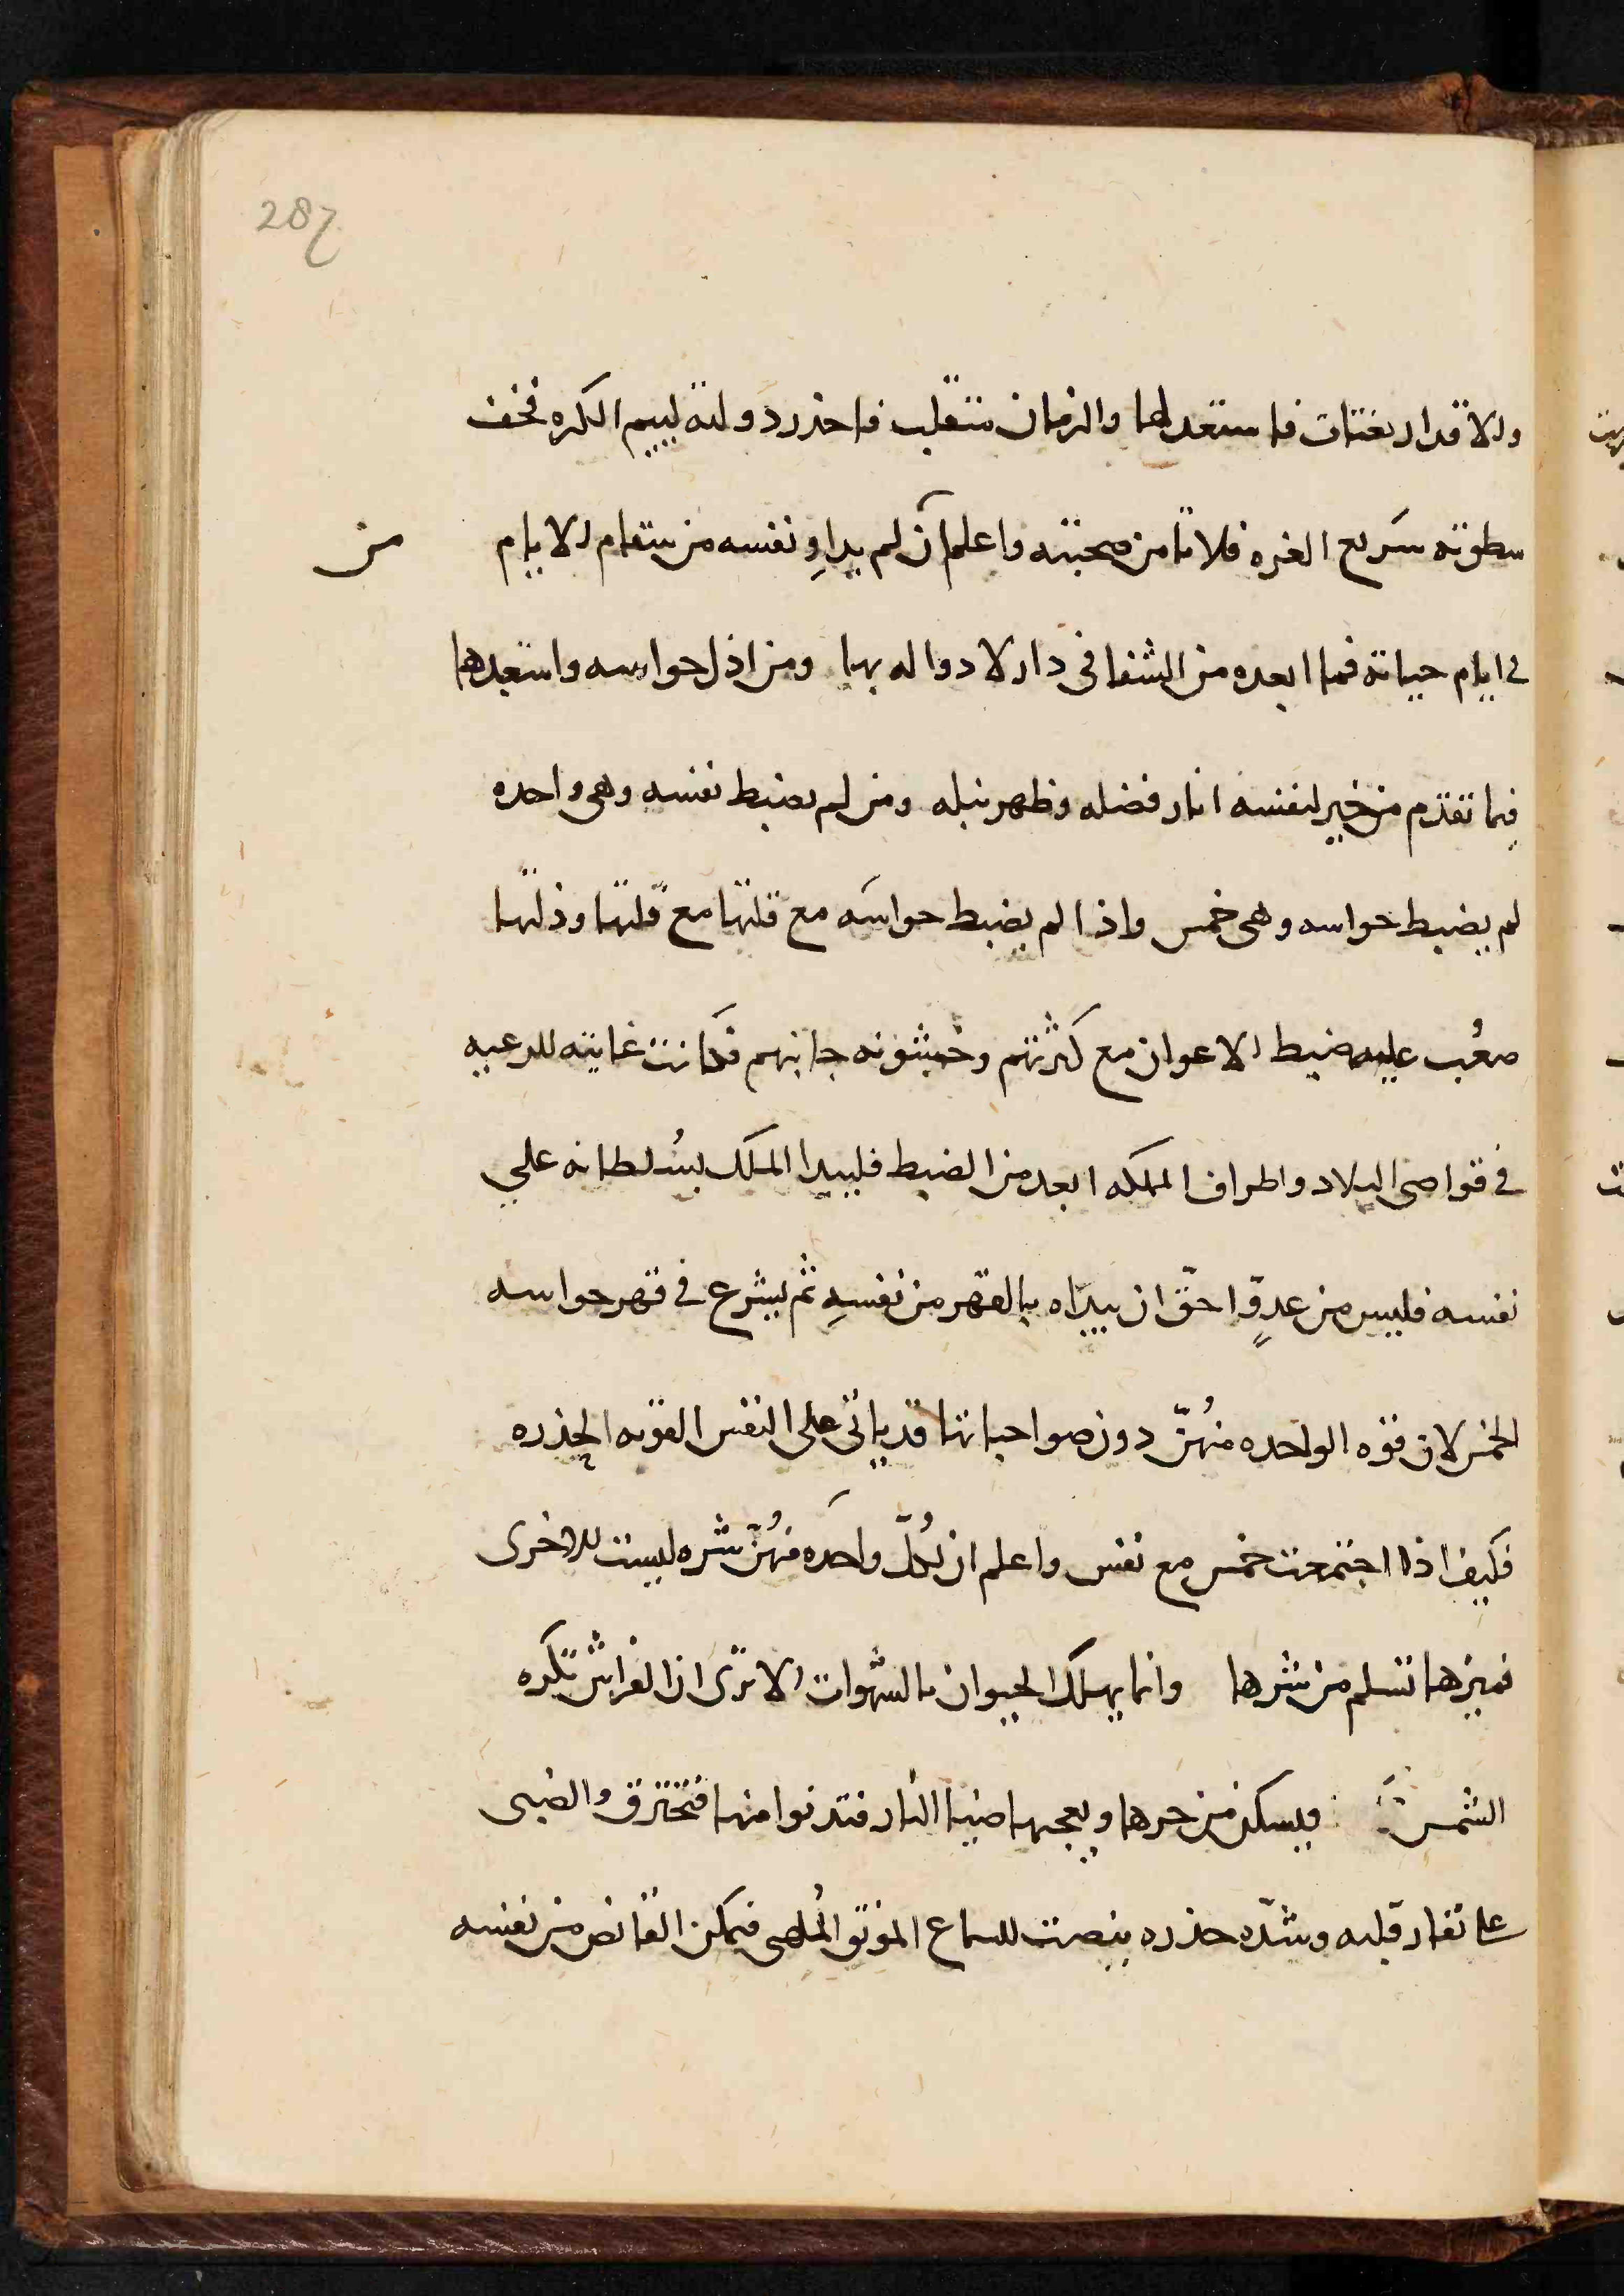 287
والاقدار بغتات فاستعد لها والزمان متقلب فاحذر دولته لييم الكره فخف
سطوته سريع الغره فلا تامن صحبته واعلم ان لم يداوِ نفسه من سقام الايام
من
في ايام حياته فما ابعده من الشفا في دار لا دوا له بها ومن اذل حواسه واستعبدها
فيما تقدم من خير لنفسه انار فضله وظهر نبله ومن لم يضبط نفسه وهي واحده
لم يضبط حواسه وهي خمس واذا لم يضبط حواسه مع قلتها مع قلتها وذلتها
صعُب عليه ضبط الاعوان مع كثرتهم وخشونه جانبهم فكانت غايته للرعيه
في قواصي البلاد واطراف المملكه ابعد من الضبط فليبدا الملك بسُلطانه علي
نفسه فليس من عدوٍّ احقّ ان يبدَاه بالقهر من نفسهِ ثم ليشرع في قهر حواسه
الخمس لان قوه الواحده منهُنّ دون صواحباتها قد ياتي على النفس القويه الحذره
فكيف اذا اجتمعت خمس مع نفس واعلم ان لكُلّ واحده منهُنّ شره ليست للاخرى
فميزها تسلم من شرها وانما يهلك الحيوان بالشهوات الا ترى ان الفراش تكره
الشمس فيسكن من حرها ويعجبها ضيا النار فتدنوا منها فتحترق والضبي
على نفار قلبه وشدّه حذره ينصت للسماع الموتق المُلهي فيمكن القانص من نفسه